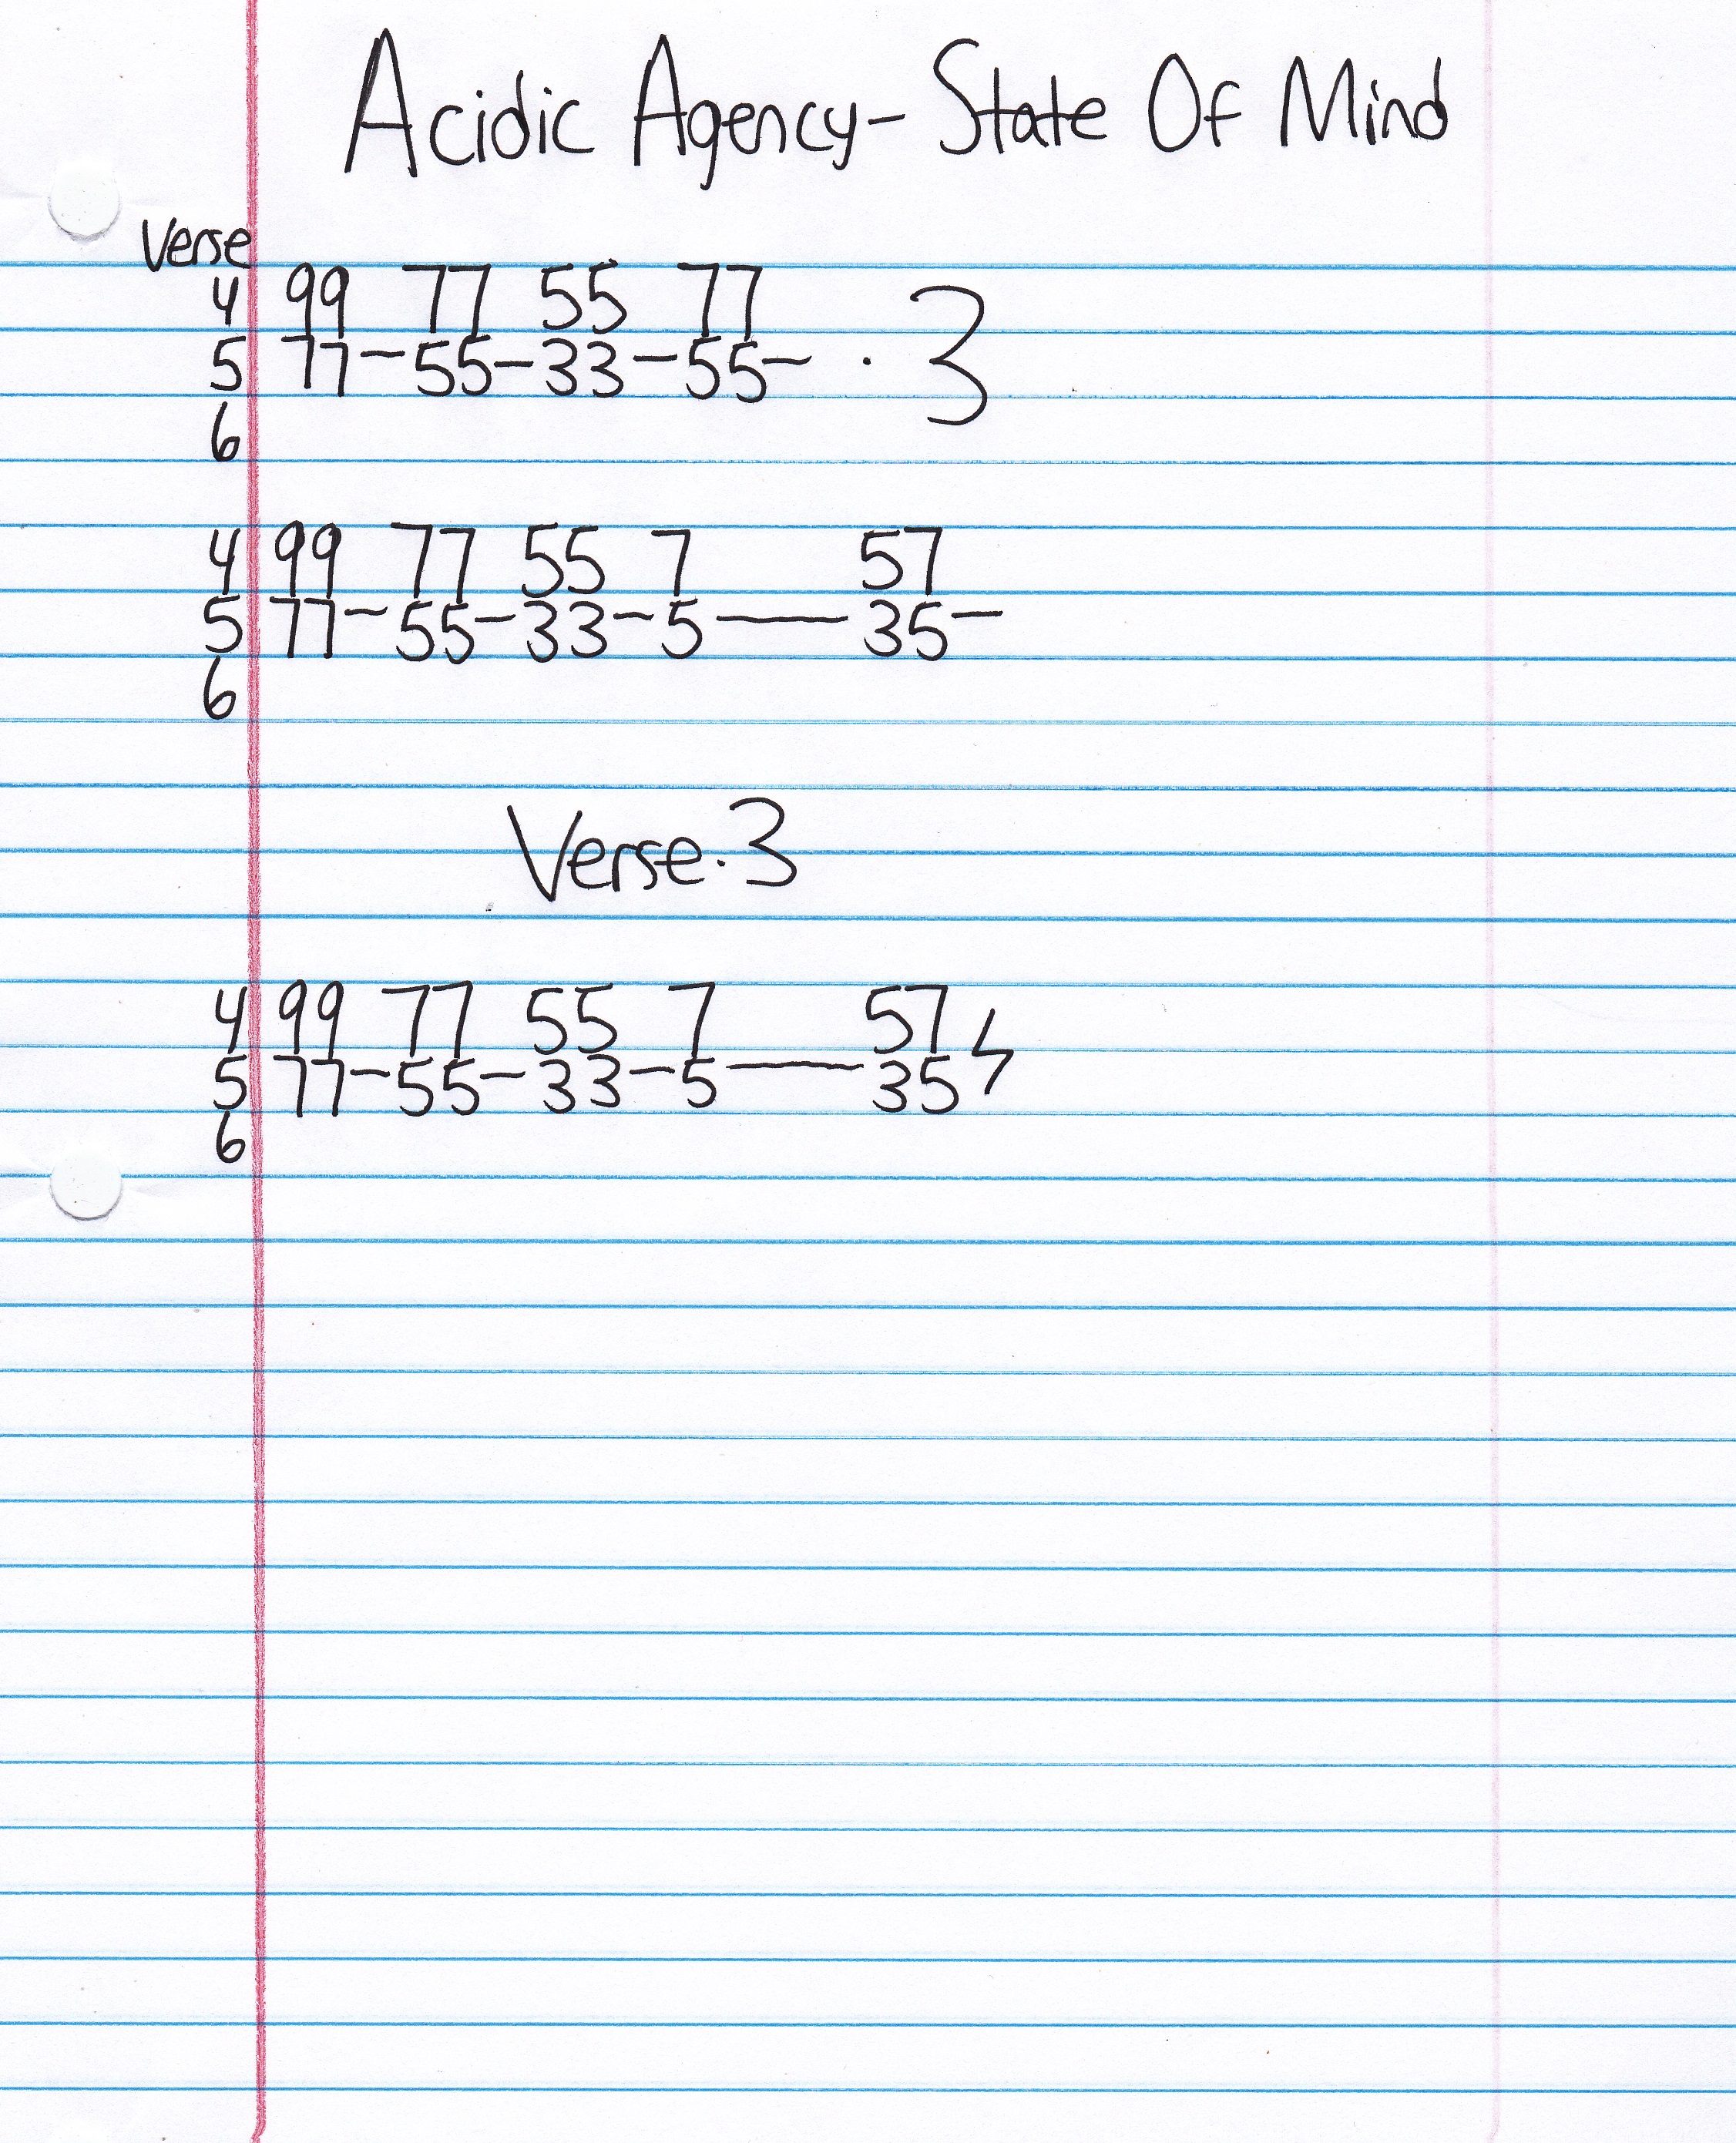 Acidic Agency- State Of Mind
Verse
4 99 77 55 77
5 77-55-33-55- · 3
6
4 99 77 55 7 57
5 77-55-33-5—35-
6
Verse·3
4 99 77 55 7 57
5 77-55-33-5—35
6